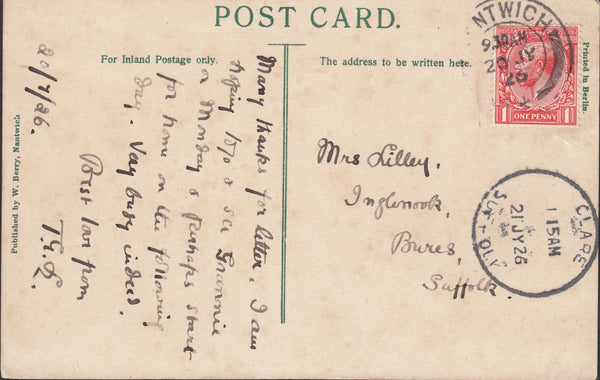 POST CARD.
For Inland Postage only.
The address to be written here.
Printed in Berlin.
Published by W. Berry, Nantwich
20/7/26.
Many thanks for letter. I am
hoping to go & see Grannie
on Monday & perhaps start
for home on the following
day. Very busy indeed.
Best love from
T.G.L.
Mrs Lilley.
Inglenook,
Bures,
Suffolk.
NTWICH
9.30AM
20 JY
26
ONE PENNY
1
1
CLARE
1 15AM
21 JY 26
SUFFOLK